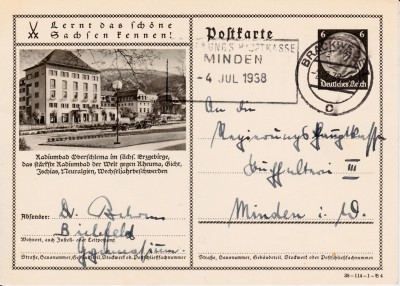 Lernt das schöne
Sachsen kennen!
Postkarte
UNGSHAUPTKASSE
MINDEN
-4 JUL 1938
BRACKWEDE
c
6 6
Deutsches Reich
Radiumbad Oberschlema im sächs. Erzgebirge,
das stärkste Radiumbad der Welt gegen Rheuma, Gicht,
Ischias, Neuralgien, Wechseljahrbeschwerden
An die
Regierungshauptkasse
Buchhalterei III
Minden i. W.
Absender:
Dr.
Bielefeld
Wohnort, auch Zustell- oder Leitpostamt
Gymnasium.
Straße, Hausnummer, Gebäudeteil, Stockwerk od. Postschließfachnummer
Straße, Hausnummer, Gebäudeteil, Stockwerk oder Postschließfachnummer
38-114-1-B 4